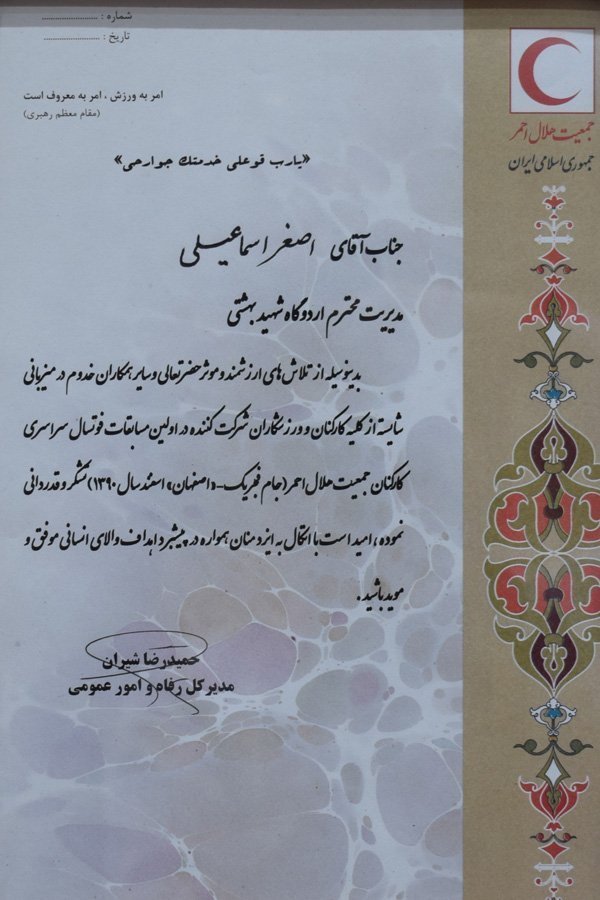 شماره : ........................
تاریخ : ........................
جمعیت هلال احمر
جمهوری اسلامی ایران
امر به ورزش ، امر به معروف است
(مقام معظم رهبری)
«یارب قو علی خدمتك جوارحی»
جناب آقای اصغر اسماعیلی
مدیریت محترم اردوگاه شهید بهشتی
بدینوسیله از تلاش های ارزشمند و موثر حضرتعالی و سایر همکاران خدوم در میزبانی
شایسته از کلیه کارکنان و ورزشکاران شرکت کننده در اولین مسابقات فوتسال سراسری
کارکنان جمعیت هلال احمر (جام فیزیک - «اصفهان» اسفند سال ۱۳۹۰) تشکر و قدردانی
نموده ، امید است با اتکال به ایزد منان همواره در پیشبرد اهداف والای انسانی موفق و
موید باشید .
حمیدرضا شیران
مدیر کل رفاه و امور عمومی